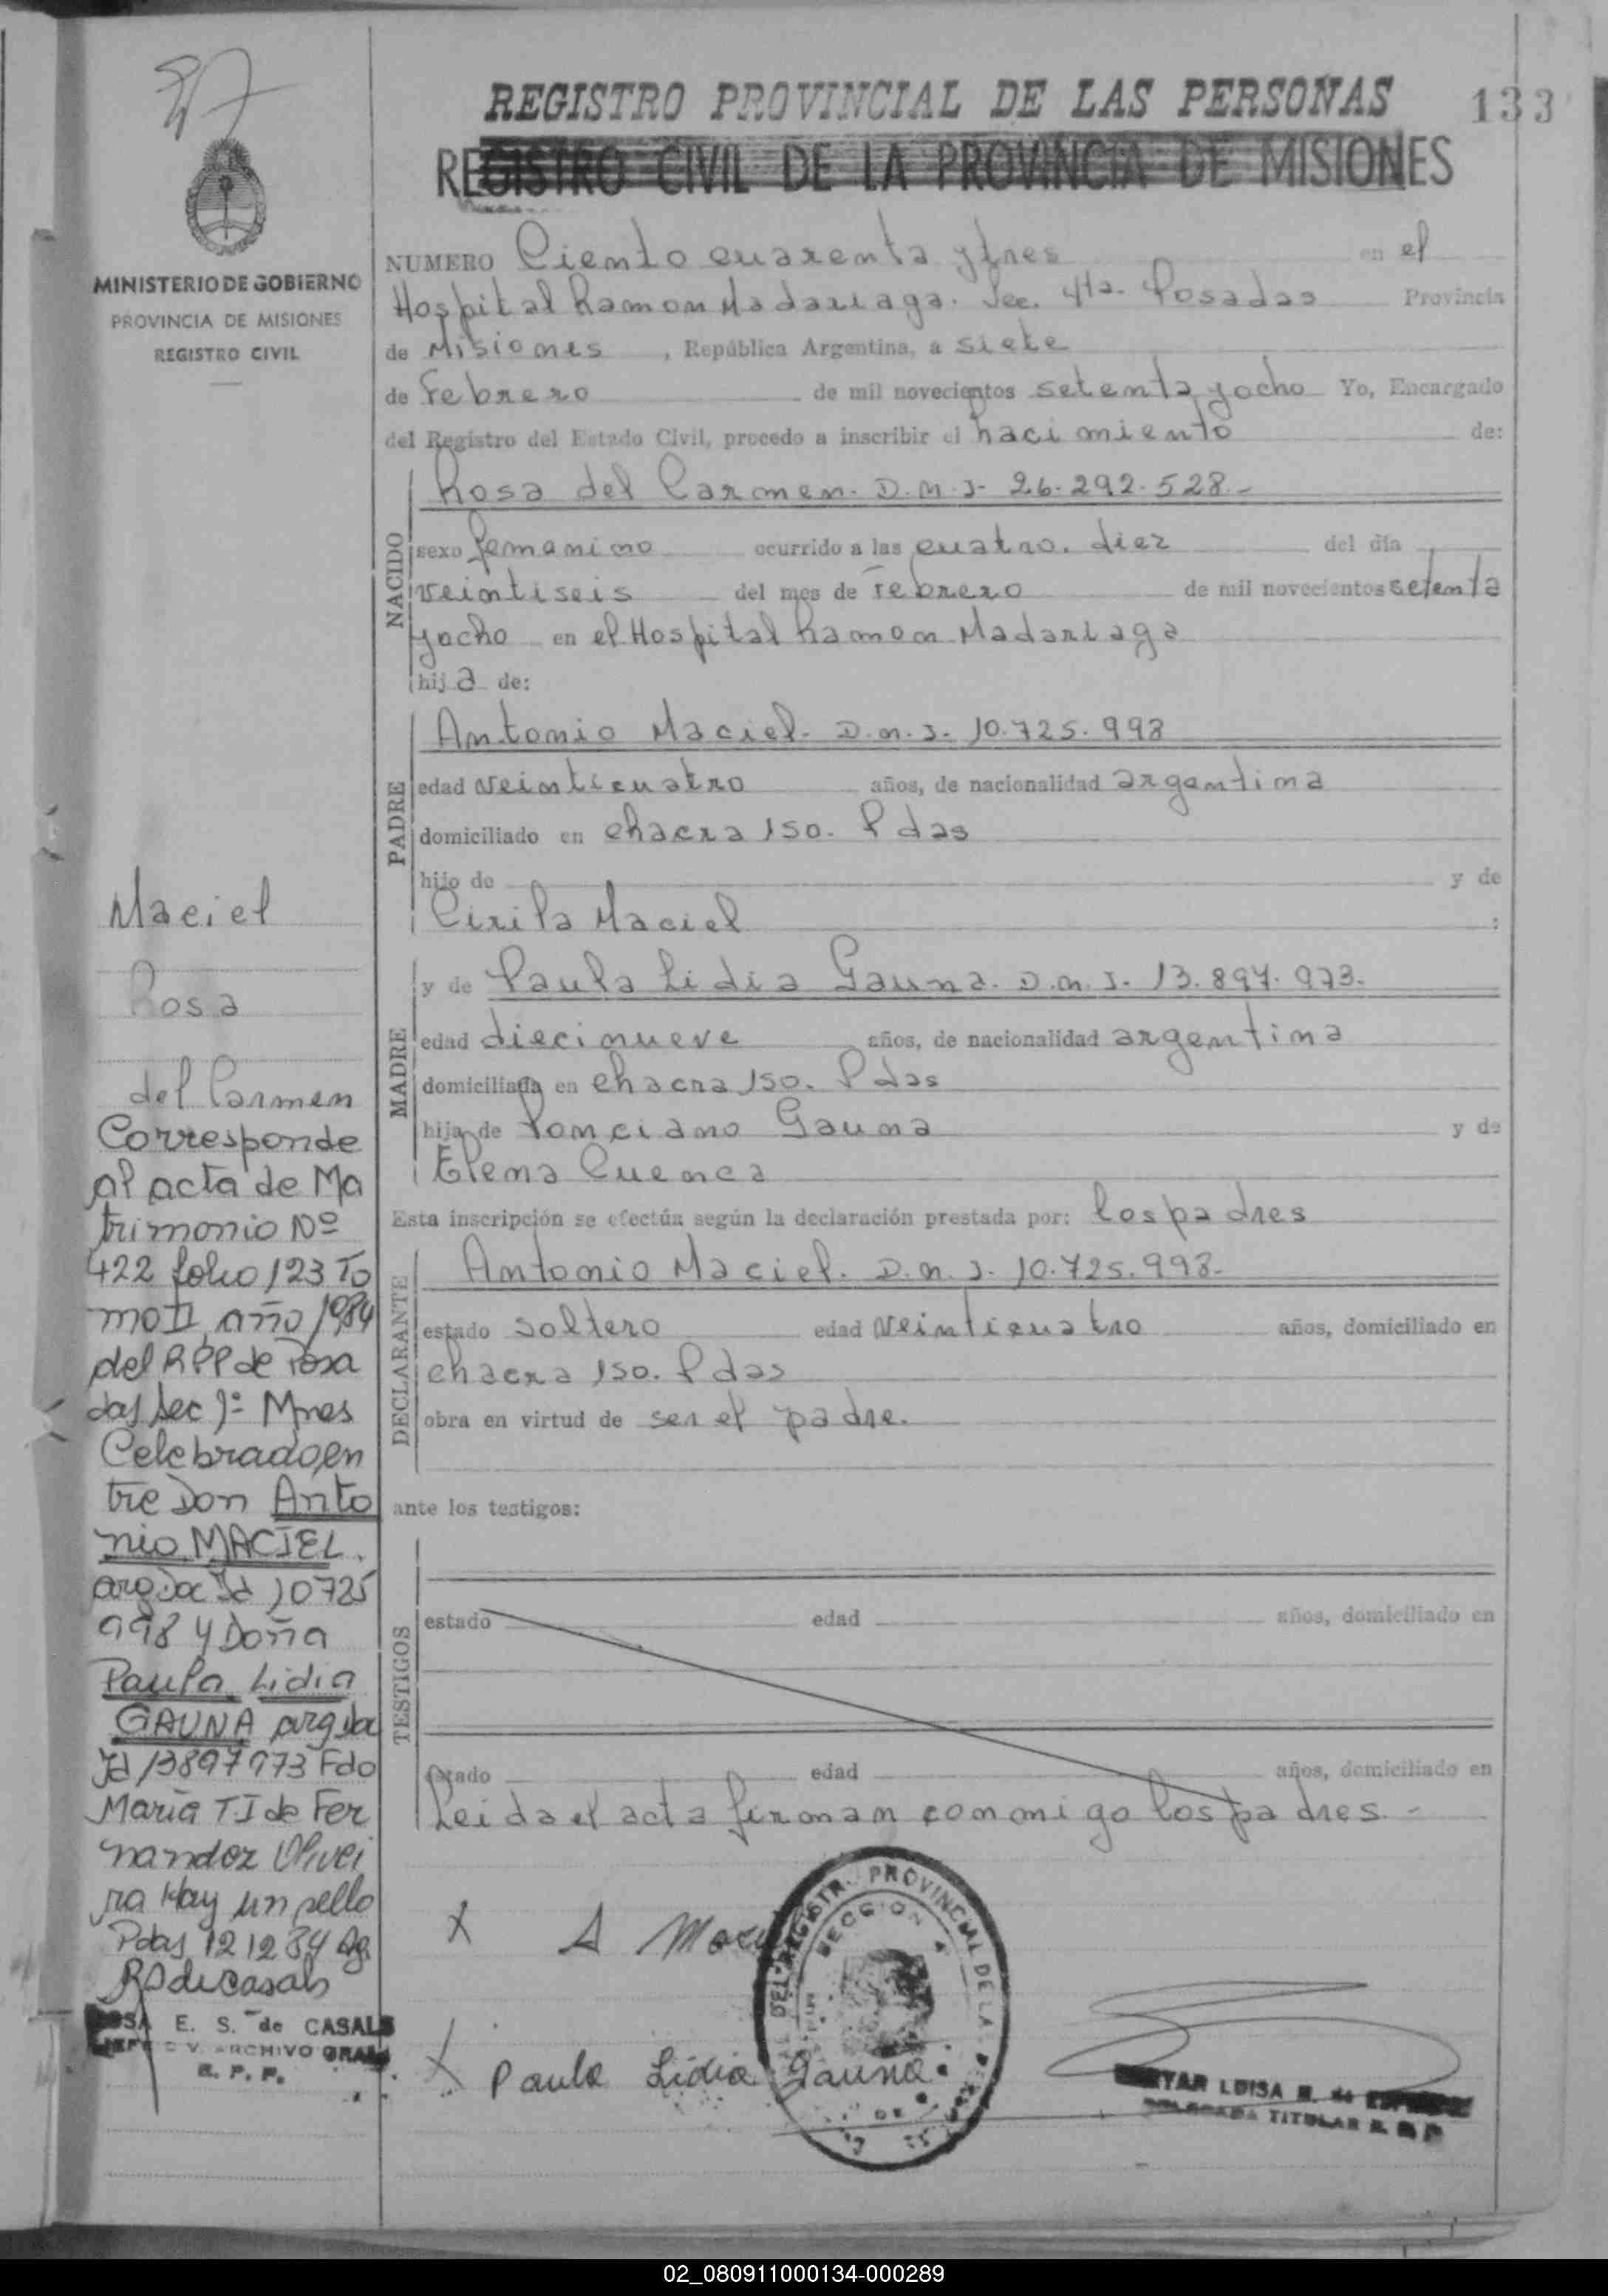 133
REGISTRO PROVINCIAL DE LAS PERSONAS
REGISTRO CIVIL DE LA PROVINCIA DE MISIONES
MINISTERIO DE GOBIERNO
PROVINCIA DE MISIONES
REGISTRO CIVIL
NUMERO Ciento cuarenta y tres en el
Hospital Ramon Madariaga. Sec. 4ta. Posadas Provincia
de Misiones , República Argentina, a siete
de Febrero de mil novecientos setenta y ocho Yo, Encargado
del Registro del Estado Civil, procedo a inscribir el naci miento de:
NACIDO
Rosa del Carmen. D.N.I. 26.292.528.-
sexo femanino ocurrido a las cuatro. diez del día
veintiseis del mes de Febrero de mil novecientos setenta
y ocho en el Hospital Ramon Madariaga
hij a de:
PADRE
Antonio Maciel. D.N.I. 10.725.998
edad veinticuatro años, de nacionalidad argentina
domiciliado en chacra 150. Pdas
hijo de y de
Cirila Maciel :
MADRE
y de Paula Lidia Gauna. D.N.I. 13.897.973.
edad diecinueve años, de nacionalidad argentina
domiciliada en chacra 150. Pdas
hija de Ponciano Gauna y de
Elena Cuenca
Esta inscripción se efectúa según la declaración prestada por: los padres
DECLARANTE
Antonio Maciel. D.N.I. 10.725.998.
estado soltero edad veinticuatro años, domiciliado en
chacra 150. Pdas
obra en virtud de ser el padre.
ante los testigos:
TESTIGOS
estado edad años, domiciliado en
estado edad años, domiciliado en
Leida el acta firman conmigo los padres.-
X A
X Paula Lidia Gauna
DEL REGISTRO PROVINCIAL DE LA
SECCION 4
LUISA
TITULAR
Maciel
Rosa
del Carmen
Corresponde
al acta de Ma
trimonio Nº
422 folio 123 To
mo II año 1984
del RPP de Posa
das Sec 1º Mnes
Celebrado en
tre Don Anto
nio MACIEL.
arg Doc Id 10725
998 y Doña
Paula Lidia
GAUNA arg Doc
Id 13897973 Fdo
María T I de Fer
nandez Olivei
ra Hay un sello
Pdas 12 12 84
RS de Casals
ROSA E. S. de CASALS
JEFE DIV. ARCHIVO GRAL
R. P. P.
02_080911000134-000289